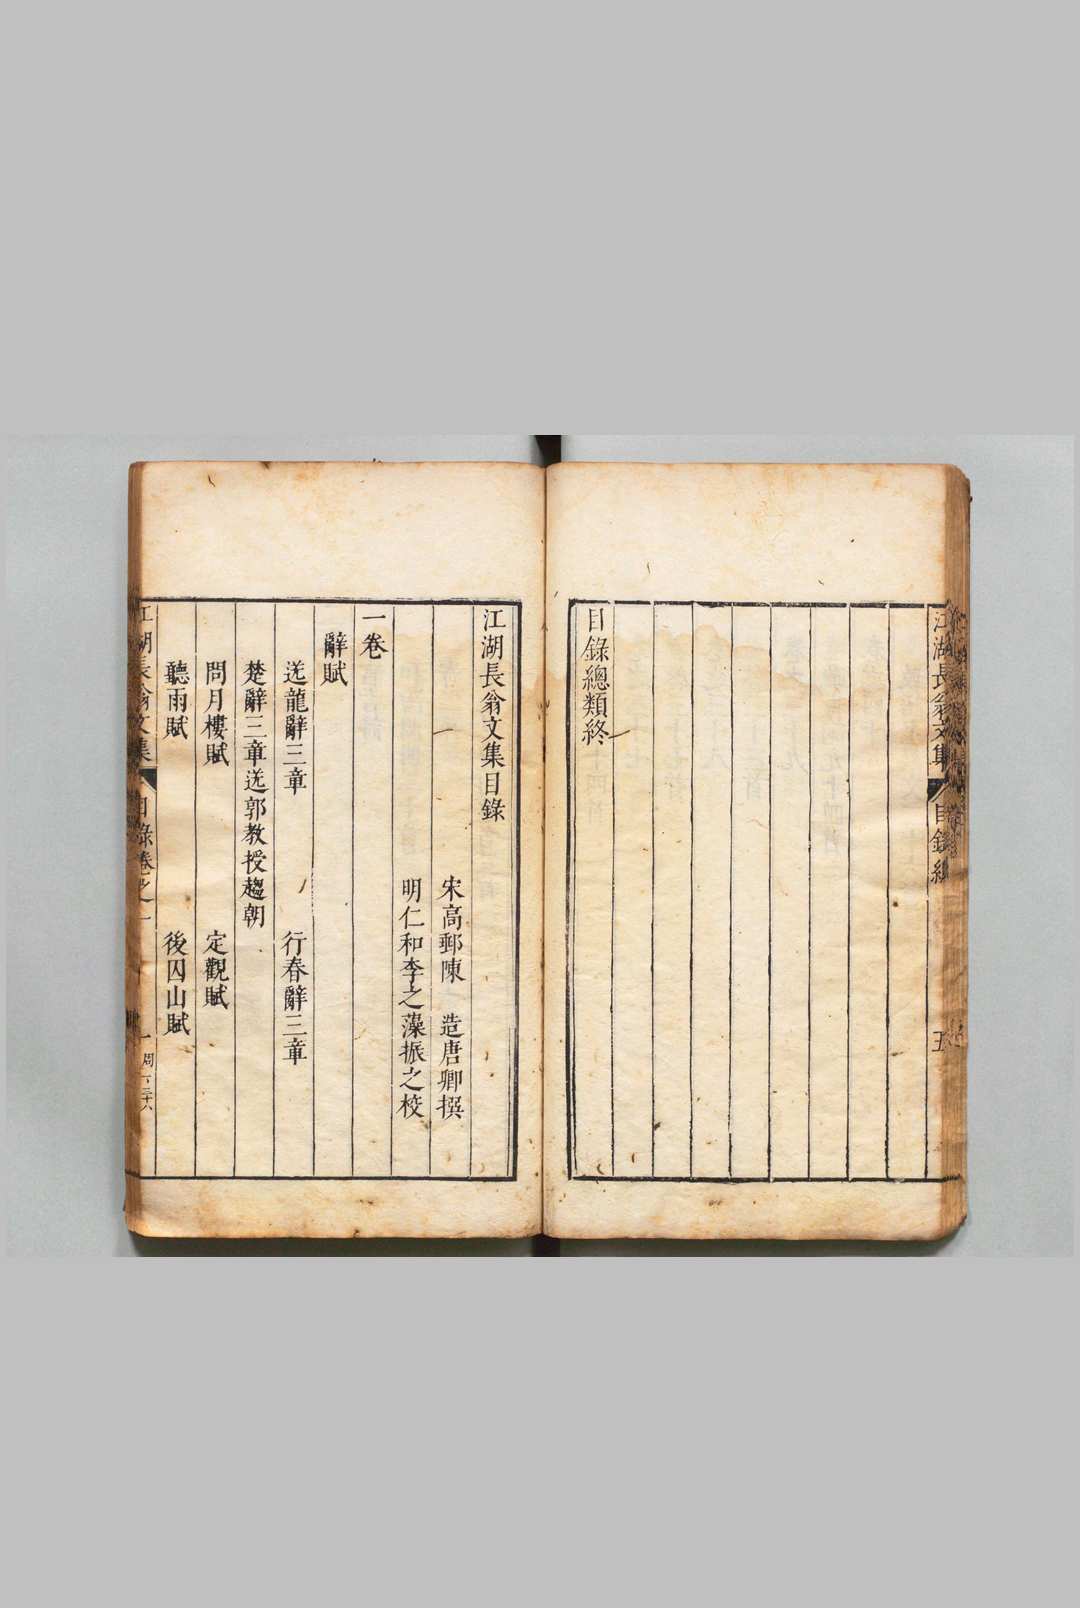 江湖長翁文集
目錄總
五
目錄總類終
江湖長翁文集目錄
宋高郵陳 造唐卿撰
明仁和李之藻振之校
一卷
辭賦
送龍辭三章 行春辭三章
楚辭三章送郭教授趨朝
問月樓賦 定觀賦
聽雨賦 後囚山賦
江湖長翁文集 目錄卷之一
一